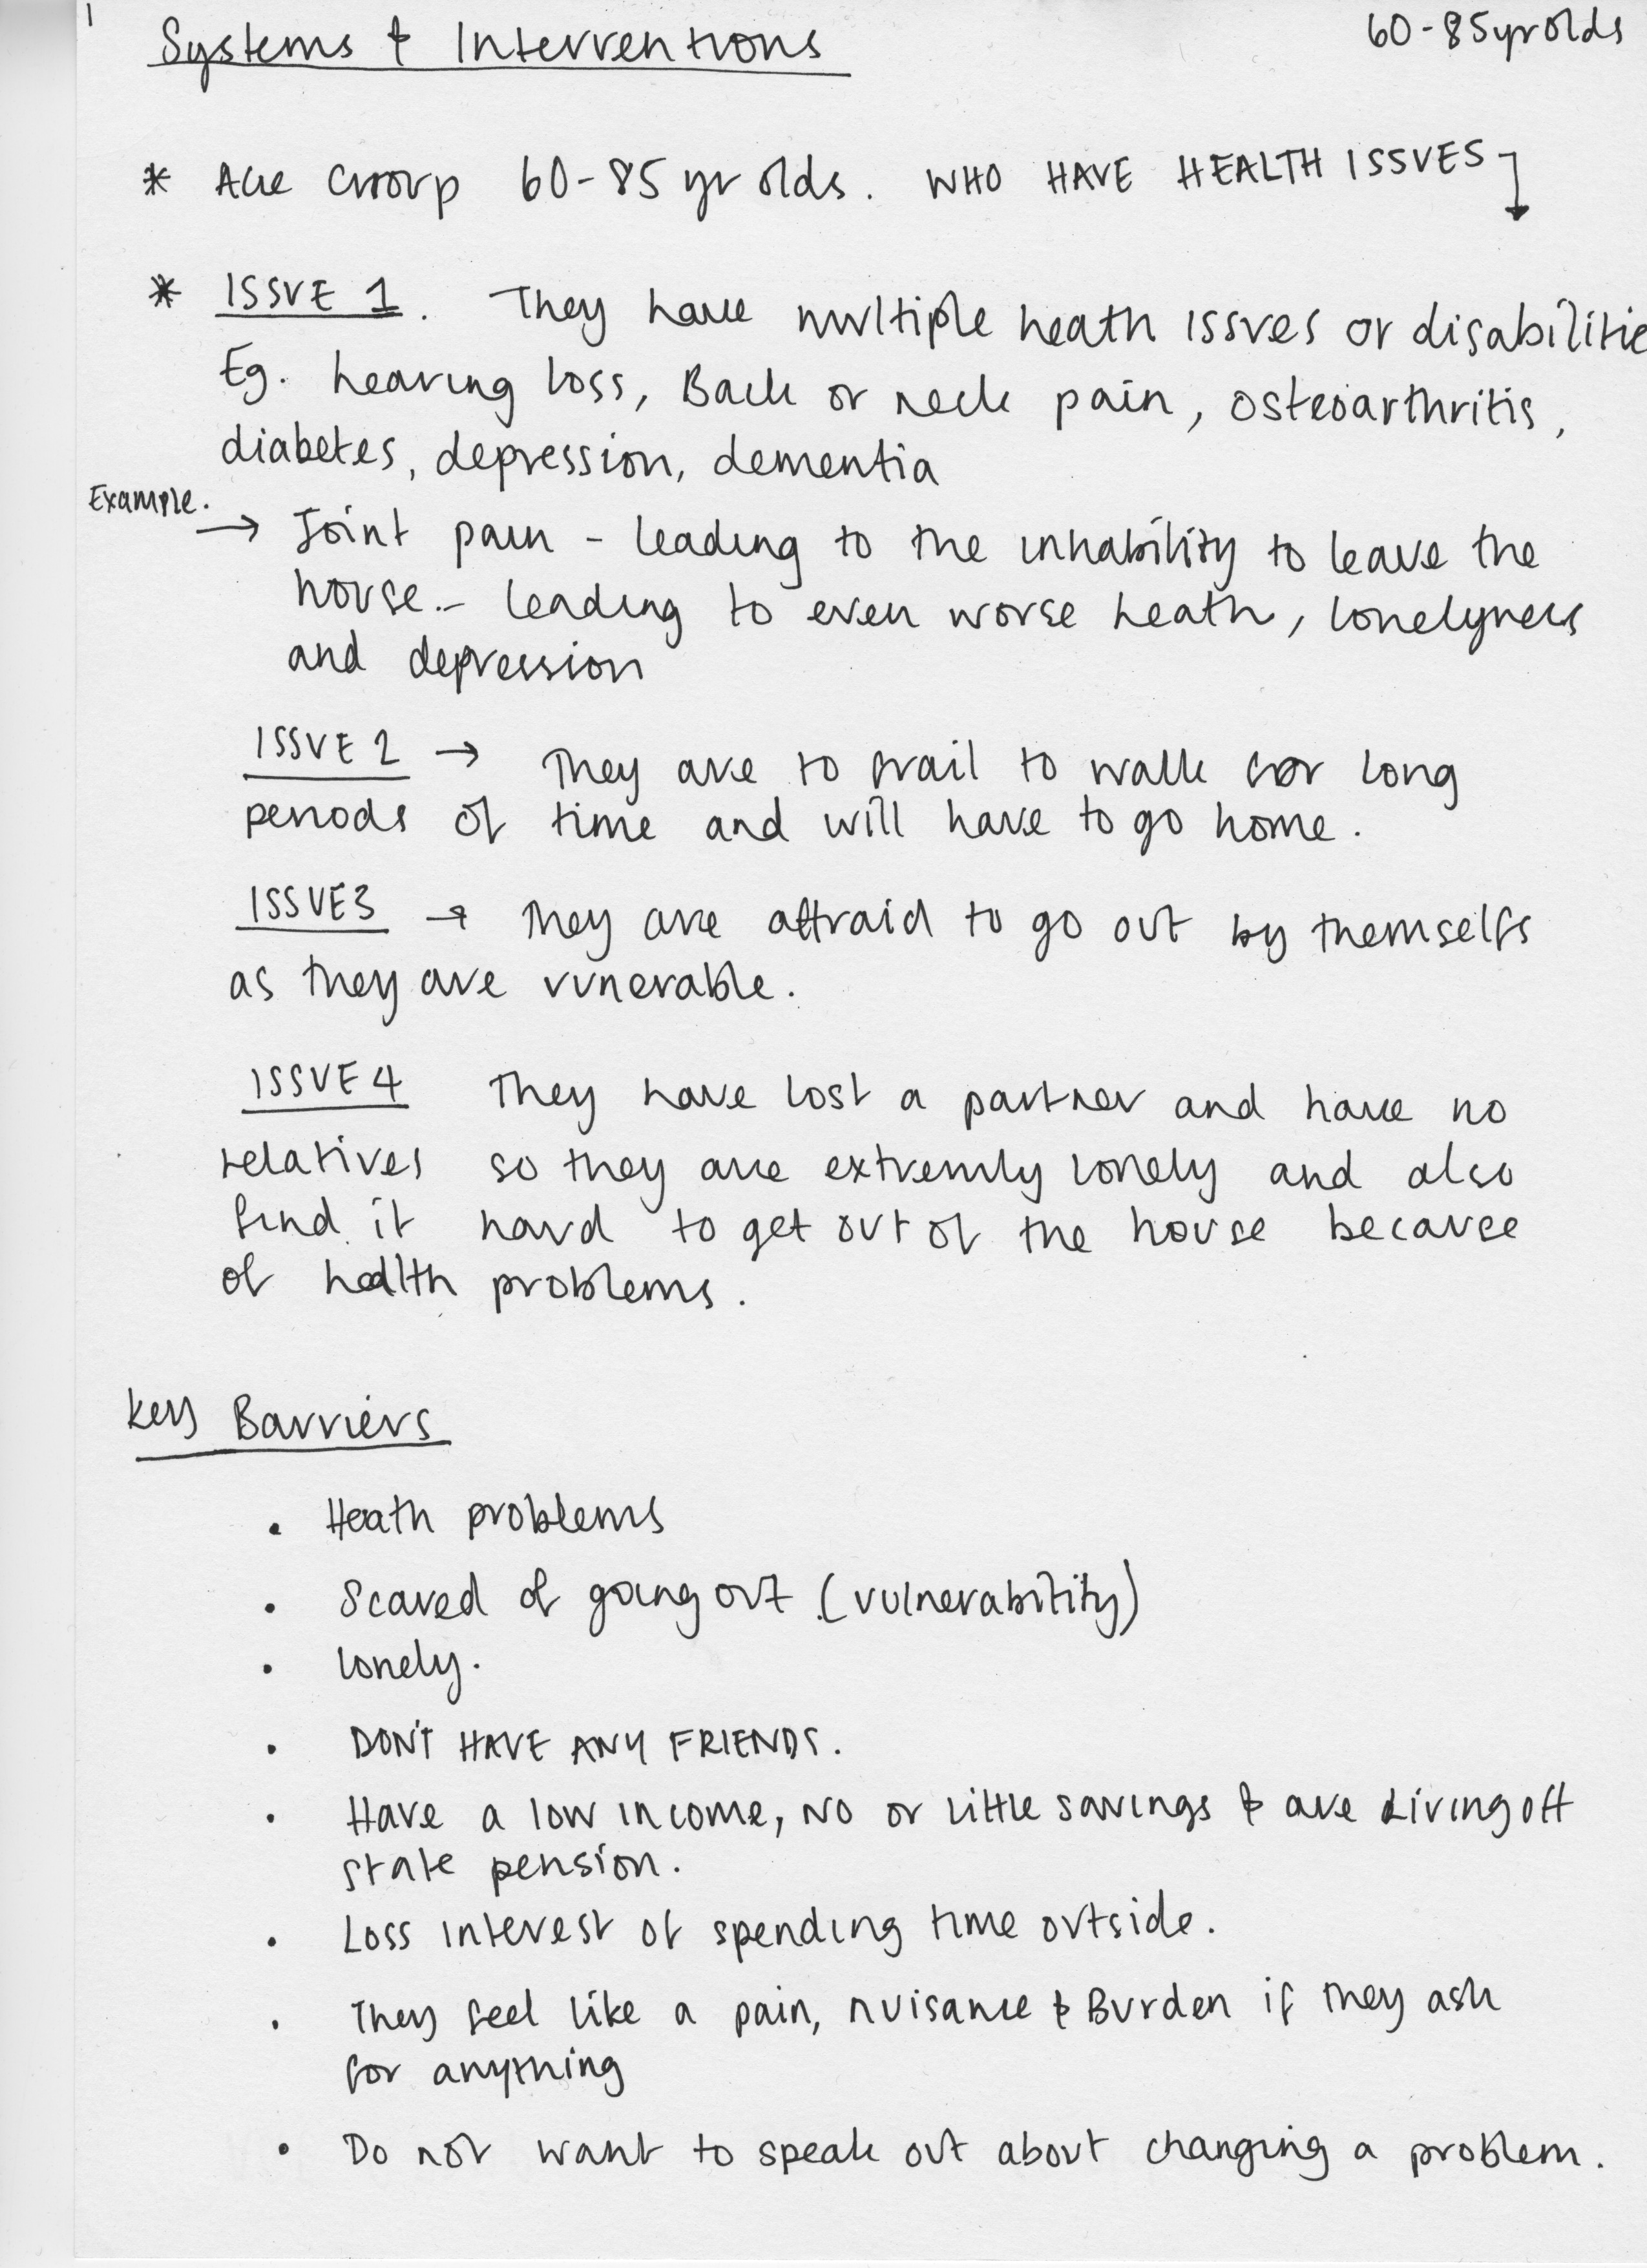 1
Systems & Interventions
60-85yr olds
* Age Group 60-85 yr olds. WHO HAVE HEALTH ISSUES
* ISSUE 1. They have multiple heath issues or disabilitie
Eg. hearing loss, Back or neck pain, osteoarthritis,
diabetes, depression, dementia
Example.
→ Joint pain - leading to the inhability to leave the
house.- leading to even worse heath, lonelyness
and depression
ISSUE 2 → They are to frail to walk for long
periods of time and will have to go home.
ISSUE3 → They are affraid to go out by themselfs
as they are vunerable.
ISSUE4 They have lost a partner and have no
relatives so they are extremly lonely and also
find it hard to get out of the house because
of health problems.
Key Barriers
• Heath problems
• Scared of going out (vulnerability)
• lonely.
• DON'T HAVE ANY FRIENDS.
• Have a low income, no or little savings & are living off
state pension.
• Loss interest of spending time outside.
• They feel like a pain, nuisance & Burden if they ask
for anything
• Do not want to speak out about changing a problem.